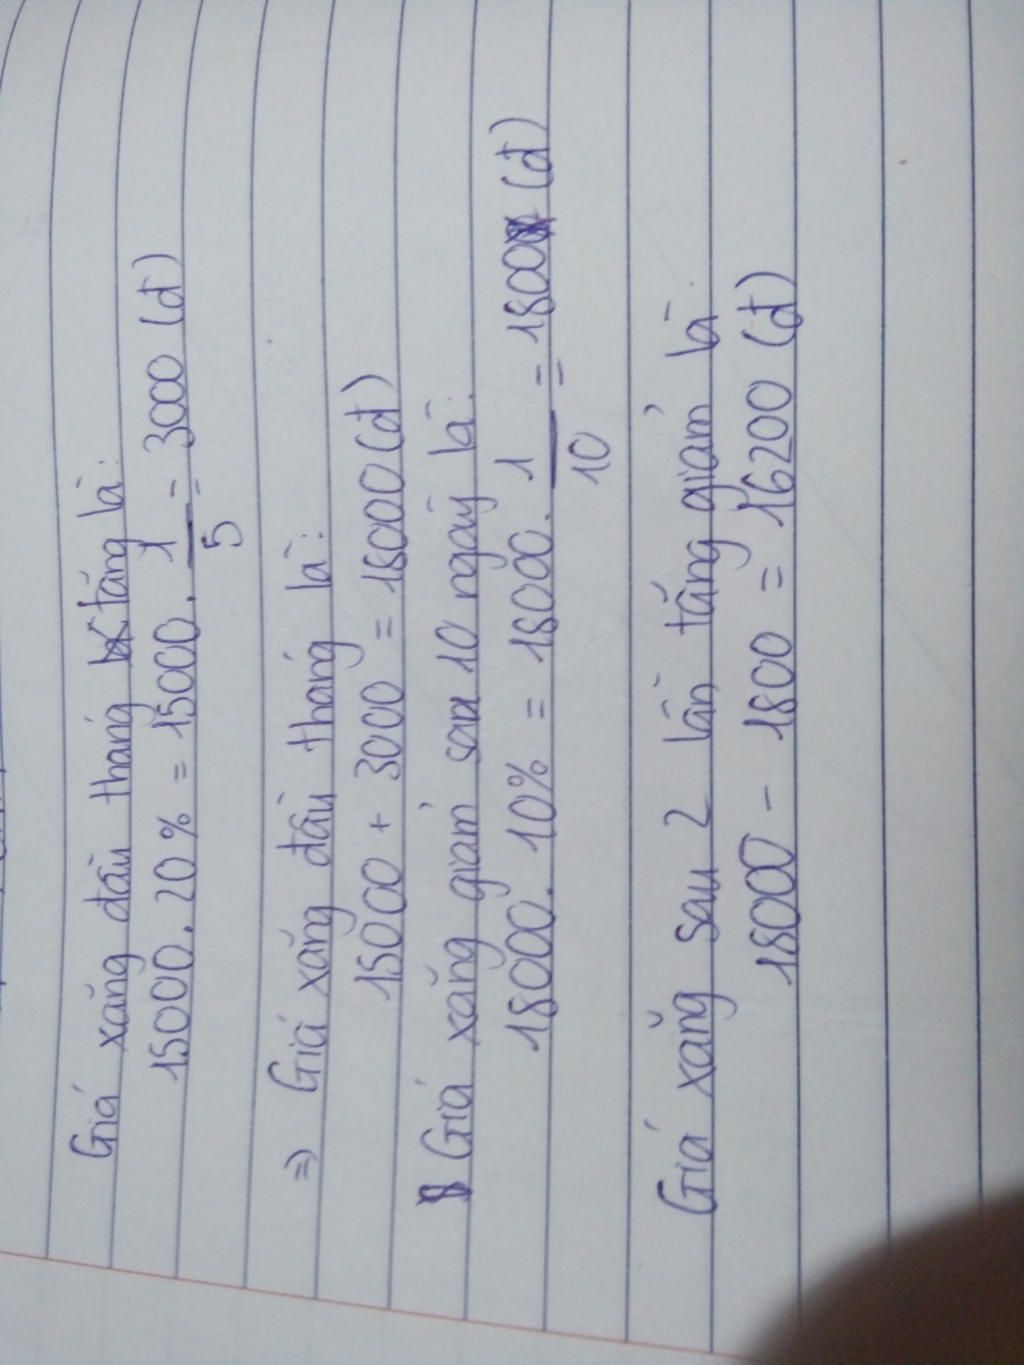 Giá xăng đầu tháng tăng là:
15000. 20% = 15000. 1/5 = 3000 (đ)
=> Giá xăng đầu tháng là:
15000 + 3000 = 18000 (đ)
Giá xăng giảm sau 10 ngày là:
18000. 10% = 18000. 1/10 = 1800 (đ)
Giá xăng sau 2 lần tăng giảm là:
18000 - 1800 = 16200 (đ)